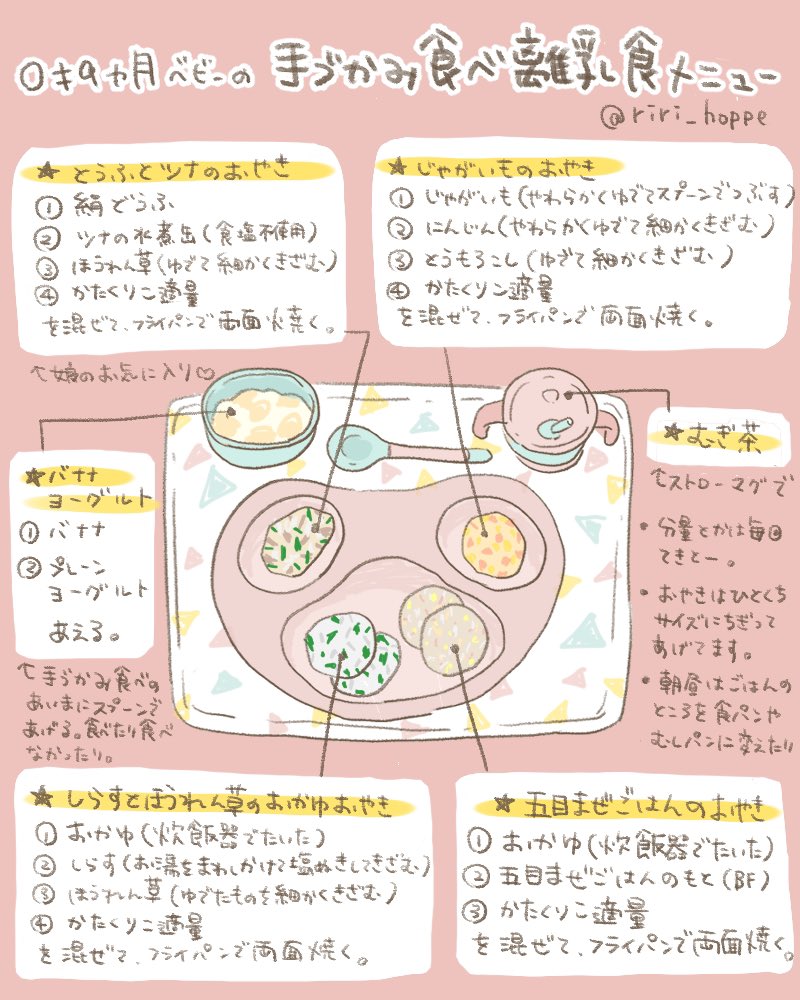 0才9ヵ月ベビーの 手づかみ食べ離乳食メニュー
@riri_hoppe
★とうふとツナのおやき
① 絹どうふ
② ツナの水煮缶(食塩不使用)
③ ほうれん草(ゆでて細かくきざむ)
④ かたくりこ適量
を混ぜて、フライパンで両面焼く。
↑娘のお気に入り♡
★じゃがいものおやき
① じゃがいも(やわらかくゆでてスプーンでつぶす)
② にんじん(やわらかくゆでて細かくきざむ)
③ とうもろこし(ゆでて細かくきざむ)
④ かたくりこ適量
を混ぜて、フライパンで両面焼く。
★バナナ
ヨーグルト
① バナナ
② プレーン
ヨーグルト
あえる。
↑手づかみ食べの
あいまにスプーンで
あげる。食べたり食べ
なかったり。
★むぎ茶
↑ストローマグで
・分量とかは毎回
てきとー。
・おやきはひとくち
サイズにちぎって
あげてます。
・朝昼はごはんの
ところを食パンや
むしパンに変えたり
★しらすとほうれん草のおかゆおやき
① おかゆ(炊飯器でたいた)
② しらす(お湯をまわしかけて塩ぬきしてきざむ)
③ ほうれん草(ゆでたものを細かくきざむ)
④ かたくりこ適量
を混ぜて、フライパンで両面焼く。
★五目まぜごはんのおやき
① おかゆ(炊飯器でたいた)
② 五目まぜごはんのもと(BF)
③ かたくりこ適量
を混ぜて、フライパンで両面焼く。